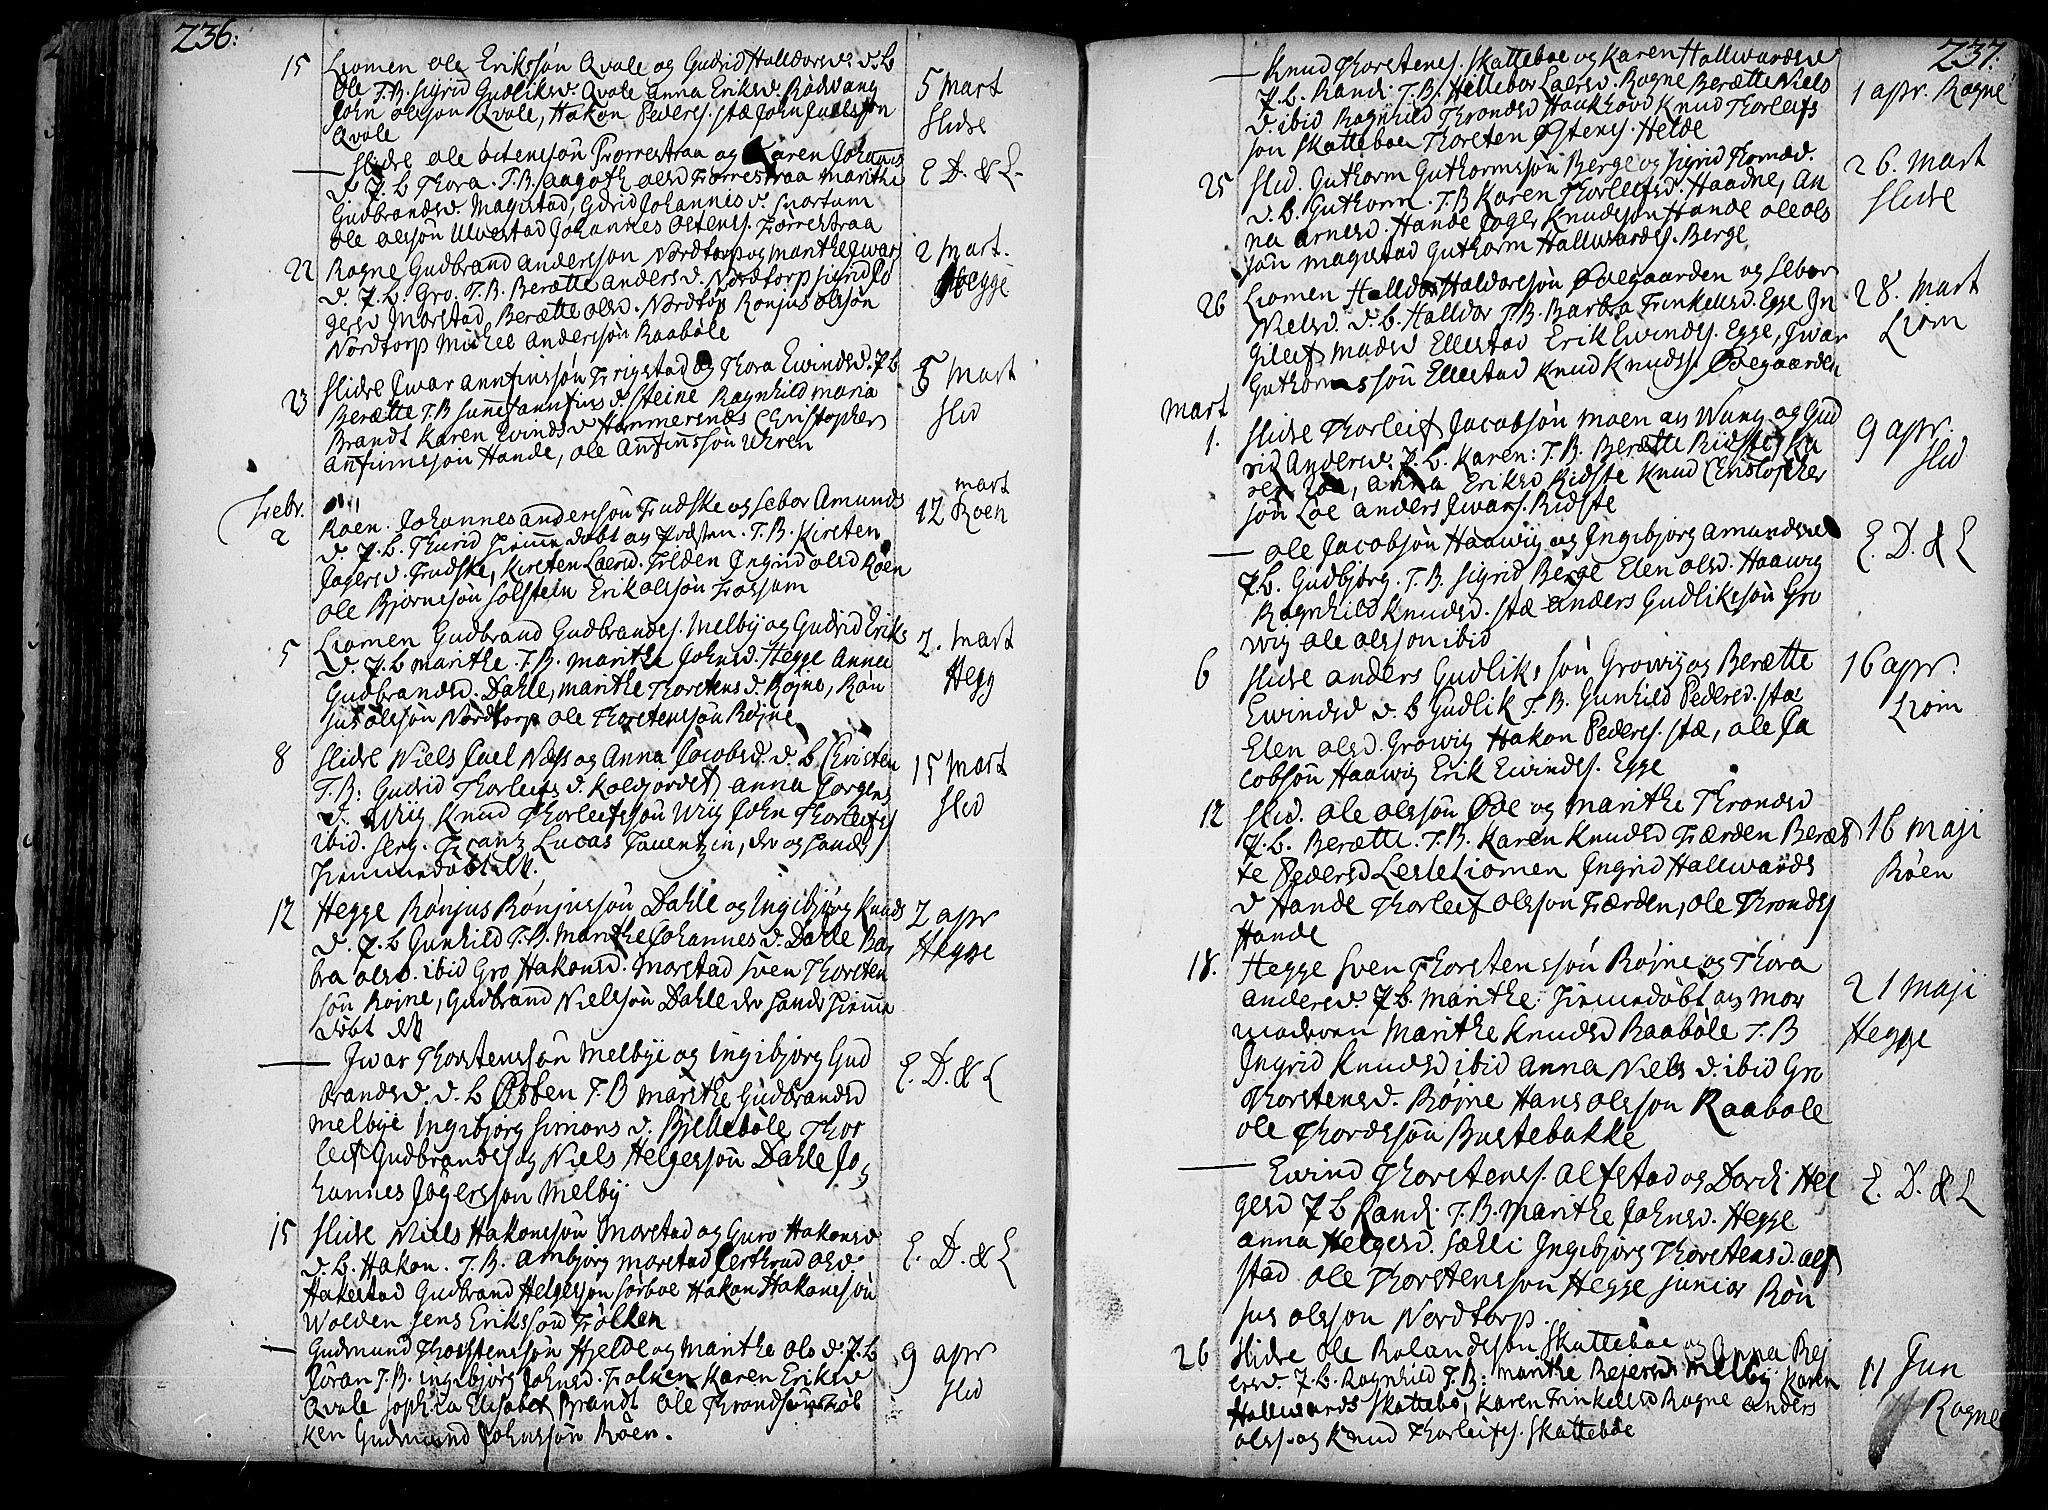 236:
15 Liomen Ole Erikssøn Qvale og Gudrid Halldorsd. d. B.
Ole T.B. Sigrid Gudliksd. Qvale Anna Eriksd. Rødvang
John Olsson Qvale, Hakon Peders. Stæ John
Qvale
5 Mart
Slidre
— Slidre Ole Østenssøn Førrestraa og Karen Johannis
d. P.B. Thora. T.B. Aagoth Olsd Førrestraa Marithe
Gudbrandsd. Magistad, Johannisd. Snortum
Ole Olssøn Ulvestad Johannes Østens. Førrestraa
E D. & L.
22 Rogne Gudbrand Anderssøn Nordtorp og Marithe Iwars
d. P.B. Gro. T.B. Berætte Andersd. Nordtorp Sigrid Jo
gersd Morstad, Berætte Olsd. Nordtorp Ronjus Olssøn
Nordtorp Michel Anderssøn Raabøle
2 Mart.
Hegge
23 Slidre Iwar Anfinssøn Trigstad og Thora Ewindsd. P.B
Berætte T.B Anfinsd. Steine Ragnhild Maria
Brandt Karen Ewindsd Hammersnes Christopher
Anfinnssøn Hande, Ole Anfinssøn Uhren
5 Mart
Slid
Febr.
2 Roen. Johannes Anderssøn Trudske og Sebor Amunds
d. P.B. Thurid Hiemmedøbt af Præsten. T.B. Kirsten
Jogersd. Trudske, Kirsten Laersd. Ingrid Olsd Røen
Ole Bjørnssøn Solstein Erik Olssøn Fossum
12 mart
Roen
5 Liomen Gudbrand Gudbrands. Melby og Gudrid Eriks
d. P.B Marithe. T.B. Marithe Johnsd. Hegge Anna
Gudbrandsd. Dahle, Marithe Thorstensd. Røjne, Røn
jus Olssøn Nordtorp Ole Thorstenssøn Røjne
2. Mart
Hegg
8 Slidre Niels Juel Næss og Anna Jacobsd. d. B Christen
T.B: Gudrid Thorleifsd. Kolsjordet, Anna Jorgens
d. Wiig Knud Thorleifssøn Wiig John Thorleifs
ibid. Serg. Frantz Lucas, der og hands
Hiemmedøbt
15 Mart
Slid
12 Hegge Rønjus Rønjussøn Dahle og Ingibjørg Knuds
d. P.B Gunhild T.B. Marithe Johannesd. Dahle Bar
bra Olsd. ibid Gro Hakonsd. Morstad Sven Thorsten
søn Røjne, Gudbrand Nielssøn Dahle der hands hiemme
døbt
2 apr
Hegge
— Iwar Thorstenssøn Melbye og Ingibjorg Gud
brandsd. d. B Østen T.B Marithe Gudbrandsd
Melbye Ingibjorg Simonsd. Bjellebøle Thor
leif Gudbrands og Niels Helgessøn Dahle Jo,
hannes Jogerssøn Melby
E. D. & L
15 Slidre Niels Hakonssøn Morstad og Guro Hakonsd
d. B. Hakon. T.B. Ambjorg Morstad Jerthrud Olsd
Hakestad Gudbrand Helgesson Sørboe Hakon Hakonssøn
Wolden Jens Erikssøn Følken
E. D. & L
— Gudmund Thorstenssøn Hjelde og Marithe Olsd. P.B
Jøran T.B. Ingibjorg Johnsd. Folken Karen Eriksd
Qvale Sophia Elisabet Brandt Ole Throndsøn Fol
ken Gudmund Johnssøn Røen.
9 apr
Slid
237.
— Knud Thorstens. Skatteboe og Karen Hallwardsd
P.B. Randi. T.B. Hillebor Laersd. Rogne Berætte Niels
d. ibid Ragnhild Throndsd Haukhovd Knud Thorleifs
søn Skatteboe Thorsten Østens. Helde
1 apr. Rogne
25 Slid. Guthorm Guthormssøn Berge og Sigrid Thomæd.
d. B. Guthorm T.B Karen Thorleifsd. Haadne, An
na Arnesd. Hande Joger Knudsøn Hande Ole Ols
søn Magistad Guthorm Hallwards. Berge
26. Mart
Slidre
26 Liomen Halldor Haldorssøn Ødegaarden og Sebor
Nielsd. d. B. Halldor T.B. Barbra Finkelsd. Egge In
gileif Madsd Ellestad Erik Ewinds. Egge, Iwar
Guthormssøn Ellestad Knud Knuds. Ødegaarden
28. Mart
Liom
Mart
1. Slidre Thorleif Jacobsøn Moen af Wang og Gud
rid Andersd. P.B. Karen: T.B. Berætte Ridste, Ka
ren Loe, Anna Eriksd Ridste Knud Christopher
søn Loe Anders Iwars. Ridste
9 apr.
Slid
— Ole Jacobsøn Haawig og Ingibjorg Amundsd
P.B. Gudbjørg. T.B. Sigrid Berge Elen Olsd. Haawig
Ragnhild Knudsd. Stæ Anders Gudlikssøn Gro
wig Ole Olsson ibid
E. D. & L
6 Slidre Anders Gudlikssøn Growig og Berætte
Ewindsd d. B Gudlik T.B. Gunhild Pedersd. Stæ
Elen Olsd. Growig Hakon Peders. Stæ, Ole Ja
cobsøn Haawig Erik Ewinds. Egge
16 apr.
Liom
12 Slid. Ole Olssøn Øde og Marithe Throndsd
P.B. Berætte. T.B. Karen Knudsd Færden Beræt
te Pedersd Lesle Liomen Ingrid Hallwards
d Hande Thorleif Olsson Færden, Ole Thronds
Hande
16 Maji
Røen
18. Hegge Sven Thorstenssøn Røjne og Thora
Andersd. P.B. Marithe. Hiemmedøbt af Mor
Marithe Knudsd Raabøle T.B
Ingrid Knudsd ibid Anna Nielsd. ibid Gro
Thorstensd. Røjne Hans Olsson Raabøle
Ole Thordssøn Bustebakke
21 Maji
Hegge
— Ewind Thorstens. Alfstad og Dordi Hel
gesd P.B Randi. T.B. Marithe Johnsd. Hegge
Anna Helgesd. Sæhli Ingibjorg Thorstensd. Alf
stad Ole Thorstenssøn Hegge Junior Røn
jus Olsson Nordtorp.
E. D. & L
26 Slidre Ole Rolandssøn Skatteboe og Anna Rej
ersd. P.B. Ragnhild T.B: Marithe Rejersd. Melby Karen
Hallwards Skattebø, Karen Finkelsd Rogne Anders
Ols. og Knud Thorleifs. Skatteboe
11 Jun
Rogne